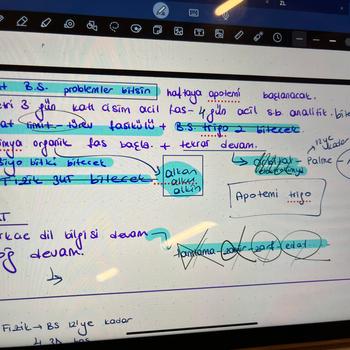 t B.S. problemler bitsin haftaya apotemi başlanacak.
3 gün katı cisim acil fas - 4 gün acil s.b. analitik. bite
at limit - türev fasikülü + B.S. trigo 2 bitecek.
organik fas başla. + tekrar devam.
12'ye kadar
Palme
Biyo bitki bitecek
Fizik 3UT bitecek
alkan
alken
alkin
Apotemi trigo
AT
dil bilgisi devam
devam.
tamlama - zamir - zarf - edat
Fizik → BS 12'ye kadar